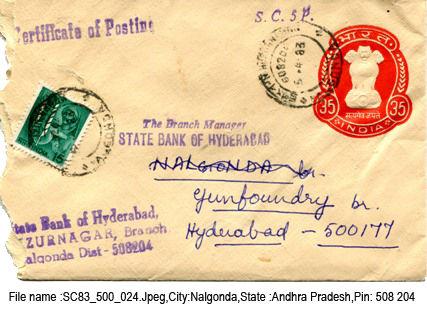 Certificate of Posting
S. C. 5 P.
भारत
35
35
सत्यमेव जयते
INDIA
The Branch Manager
STATE BANK OF HYDERABAD
NALGONDA br.
Gunfoundry br.
Hyderabad - 500177
State Bank of Hyderabad,
ZURNAGAR, Branch
Nalgonda Dist - 508204
File name :SC83_500_024.Jpeg,City:Nalgonda,State :Andhra Pradesh,Pin: 508 204